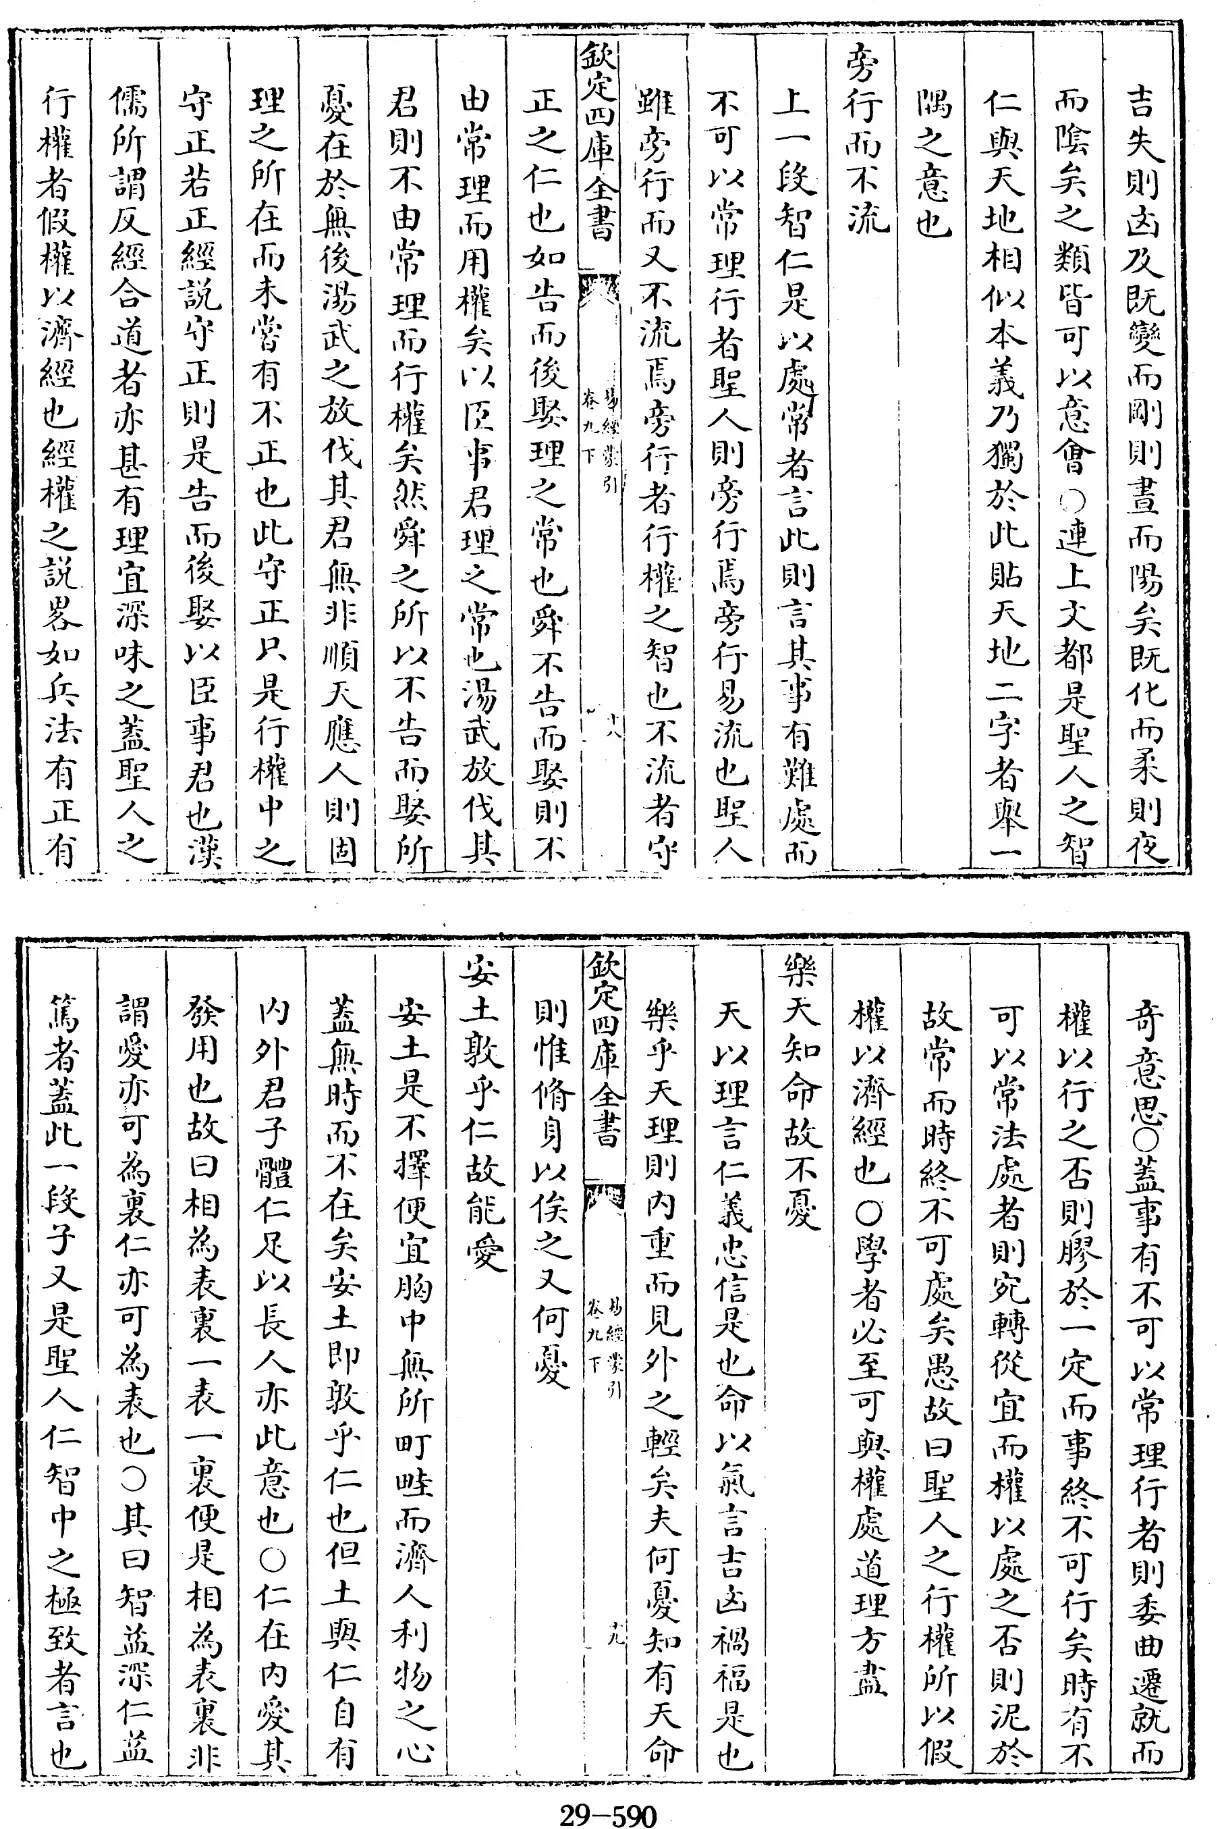 吉失則凶及既變而剛則晝而陽矣既化而柔則夜
而陰矣之類皆可以意會○連上文都是聖人之智
仁與天地相似本義乃獨於此貼天地二字者舉一
隅之意也
旁行而不流
上一段智仁是以處常者言此則言其事有難處而
不可以常理行者聖人則旁行焉旁行易流也聖人
雖旁行而又不流焉旁行者行權之智也不流者守
欽定四庫全書
易經蒙引
卷九下
十八
正之仁也如告而後娶理之常也舜不告而娶則不
由常理而用權矣以臣事君理之常也湯武放伐其
君則不由常理而行權矣然舜之所以不告而娶所
憂在於無後湯武之放伐其君無非順天應人則固
理之所在而未嘗有不正也此守正只是行權中之
守正若正經説守正則是告而後娶以臣事君也漢
儒所謂反經合道者亦甚有理宜深味之蓋聖人之
行權者假權以濟經也經權之説畧如兵法有正有
奇意思○蓋事有不可以常理行者則委曲遷就而
權以行之否則膠於一定而事終不可行矣時有不
可以常法處者則宛轉從宜而權以處之否則泥於
故常而時終不可處矣愚故曰聖人之行權所以假
權以濟經也○學者必至可與權處道理方盡
樂天知命故不憂
天以理言仁義忠信是也命以氣言吉凶禍福是也
樂乎天理則内重而見外之輕矣夫何憂知有天命
欽定四庫全書
易經蒙引
卷九下
十九
則惟脩身以俟之又何憂
安土敦乎仁故能愛
安土是不擇便宜胸中無所町畦而濟人利物之心
蓋無時而不在矣安土即敦乎仁也但土與仁自有
内外君子體仁足以長人亦此意也○仁在内愛其
發用也故曰相為表裏一表一裏便是相為表裏非
謂愛亦可為裏仁亦可為表也○其曰智益深仁益
篤者蓋此一段子又是聖人仁智中之極致者言也
29-590